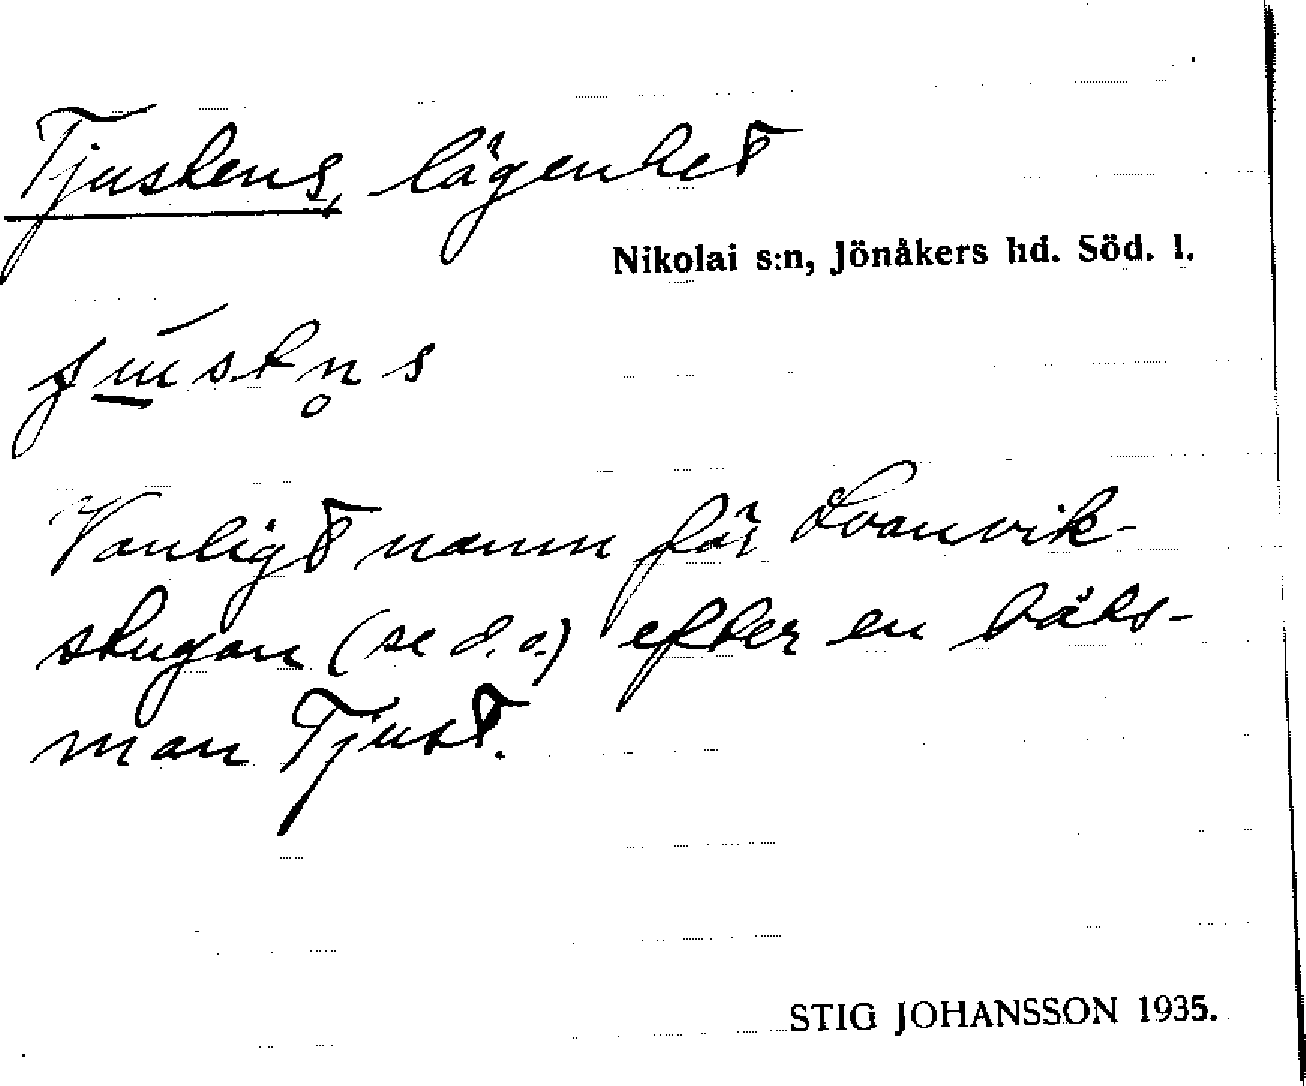 Tjustens, lägenhet
Nikolai s:n, Jönåkers hd. Söd. l.
Vanligt namn för Svanvik-
stugan (se d.o.) efter en båts-
man Tjust.
STIG JOHANSSON 1935.